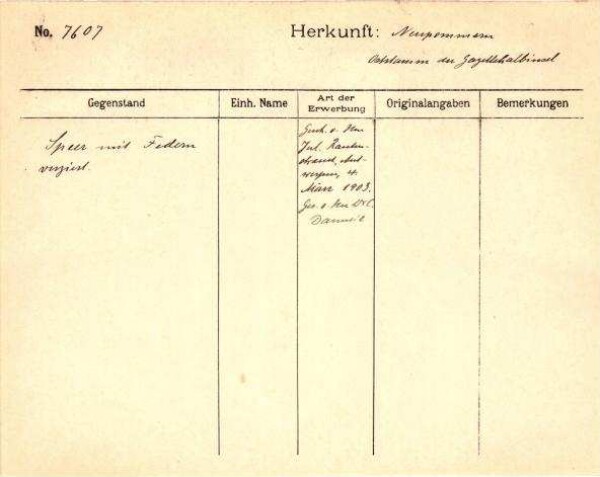 No. 7607
Herkunft: Neupommern
Oststamm der Gazellehalbinsel
Gegenstand
Einh. Name
Art der Erwerbung
Originalangaben
Bemerkungen
Speer mit Federn
verziert.
Gesch. v. Herr
Jul.
März 1903.
Ges. v. Herr